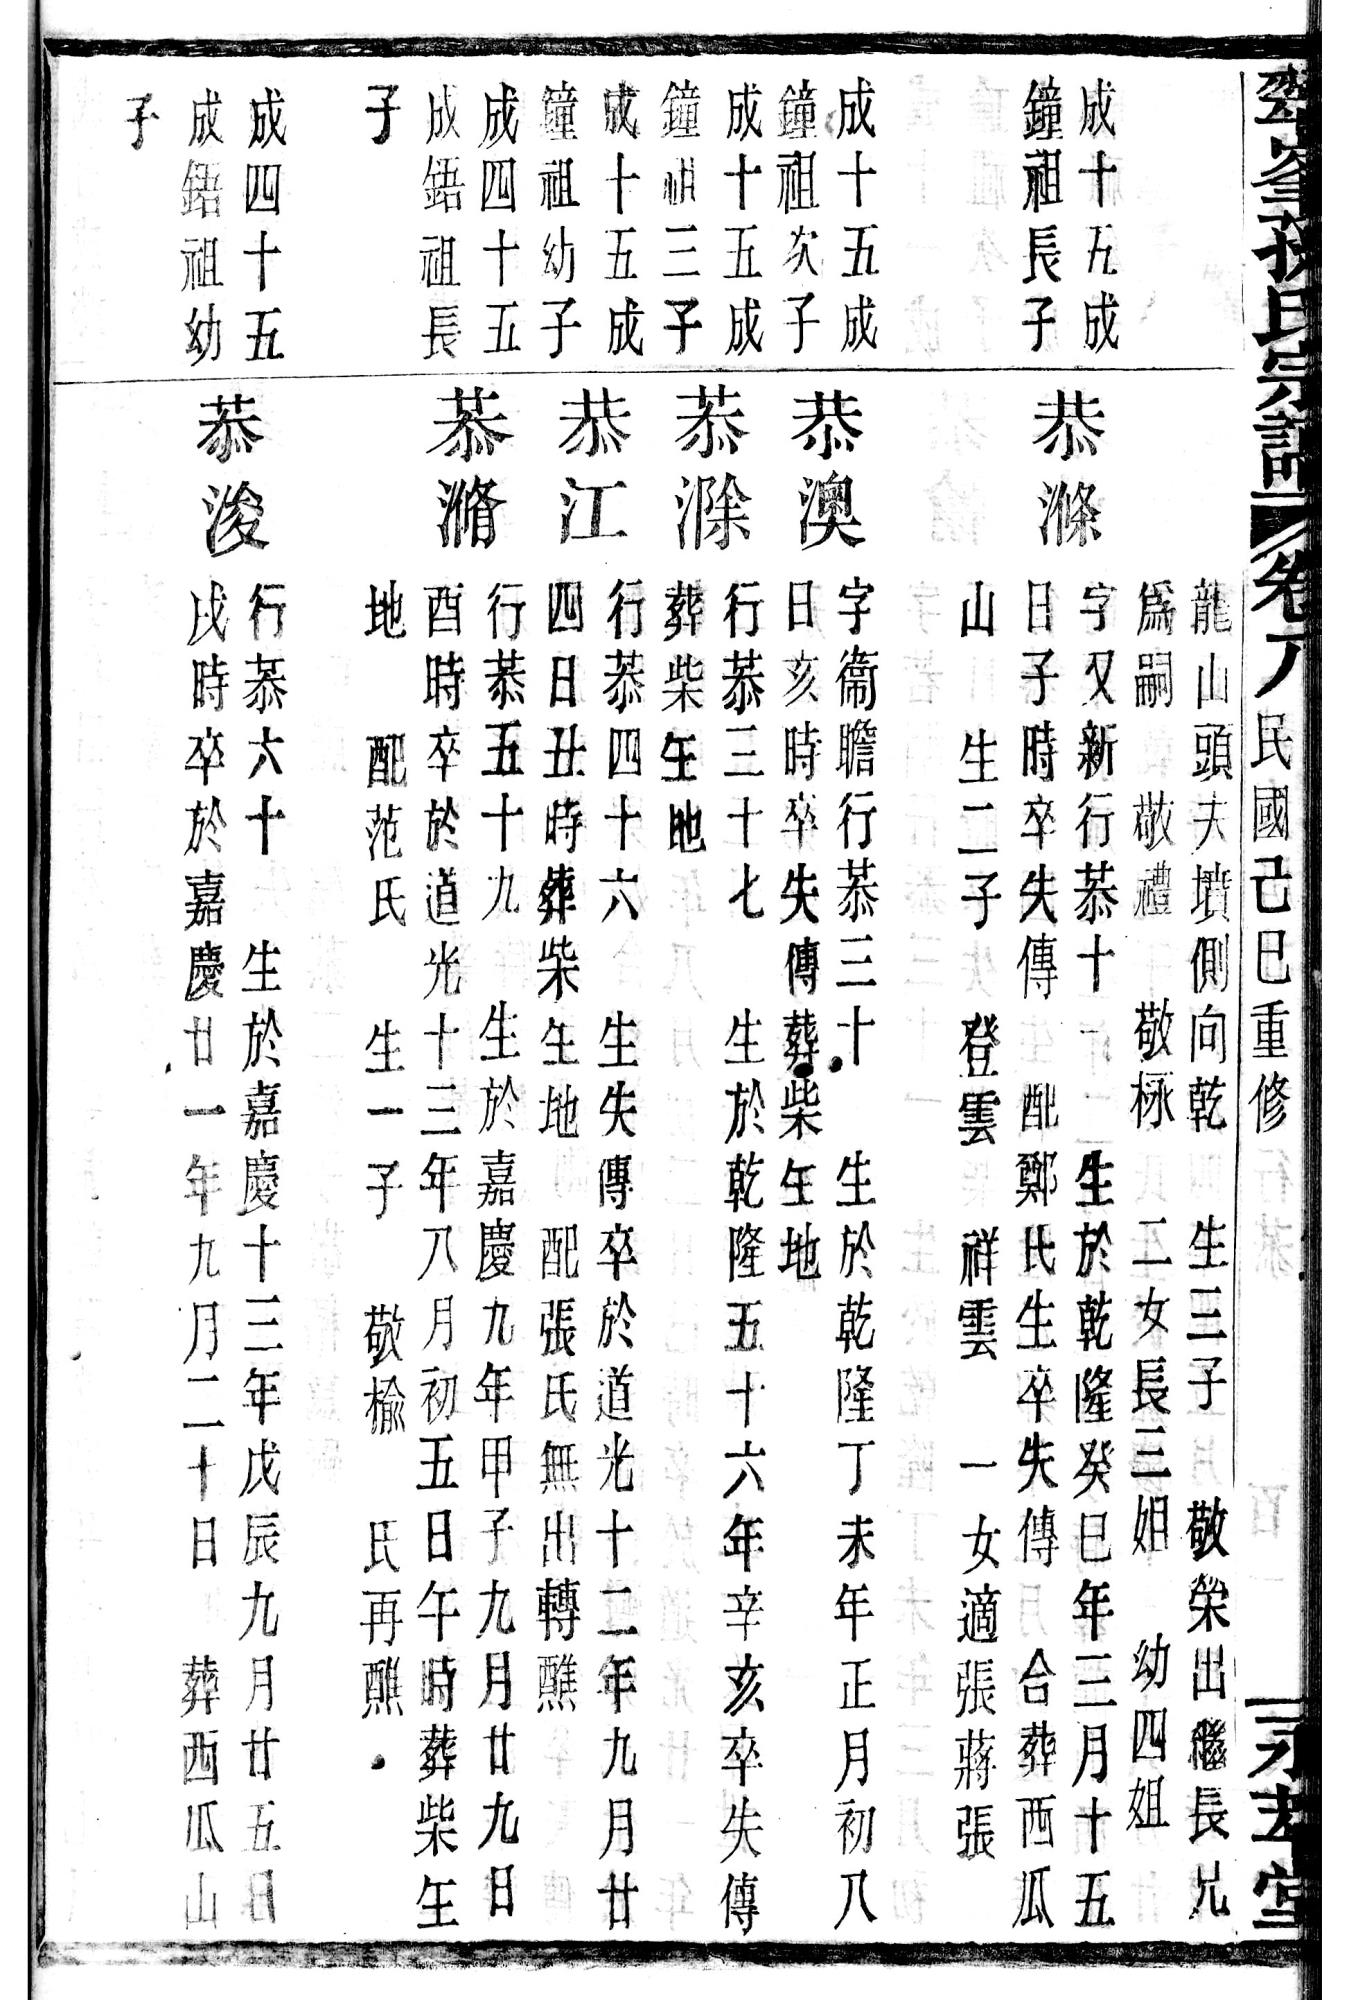 翠峯孫氏宗譜 卷八 民國己巳重修 永萃堂
龍山頭夫墳側向乾 生三子 敬榮出繼長兄
爲嗣 敬禮 敬極 二女長三姐 幼四姐
成十五成
鐘祖長子
恭滌
字又新行恭十一 生於乾隆癸巳年三月十五
日子時卒失傳 配鄭氏生卒失傳 合葬西瓜
山 生二子 登雲 祥雲 一女適張蔣張
成十五成
鐘祖次子
恭澳
字衞瞻行恭三十 生於乾隆丁未年正月初八
日亥時卒失傳葬柴生地
成十五成
鐘祖三子
恭滁
行恭三十七 生於乾隆五十六年辛亥卒失傳
葬柴生地
成十五成
鐘祖幼子
恭江
行恭四十六 生失傳卒於道光十二年九月廿
四日丑時葬柴生地 配張氏無出轉醮
成四十五
成鋙祖長
子
恭潃
行恭五十九 生於嘉慶九年甲子九月廿九日
酉時卒於道光十三年八月初五日午時葬柴生
地 配范氏 生一子 敬榆 氏再醮
成四十五
成鋙祖幼
子
恭浚
行恭六十 生於嘉慶十三年戊辰九月廿五日
戌時卒於嘉慶廿一年九月二十日 葬西瓜山